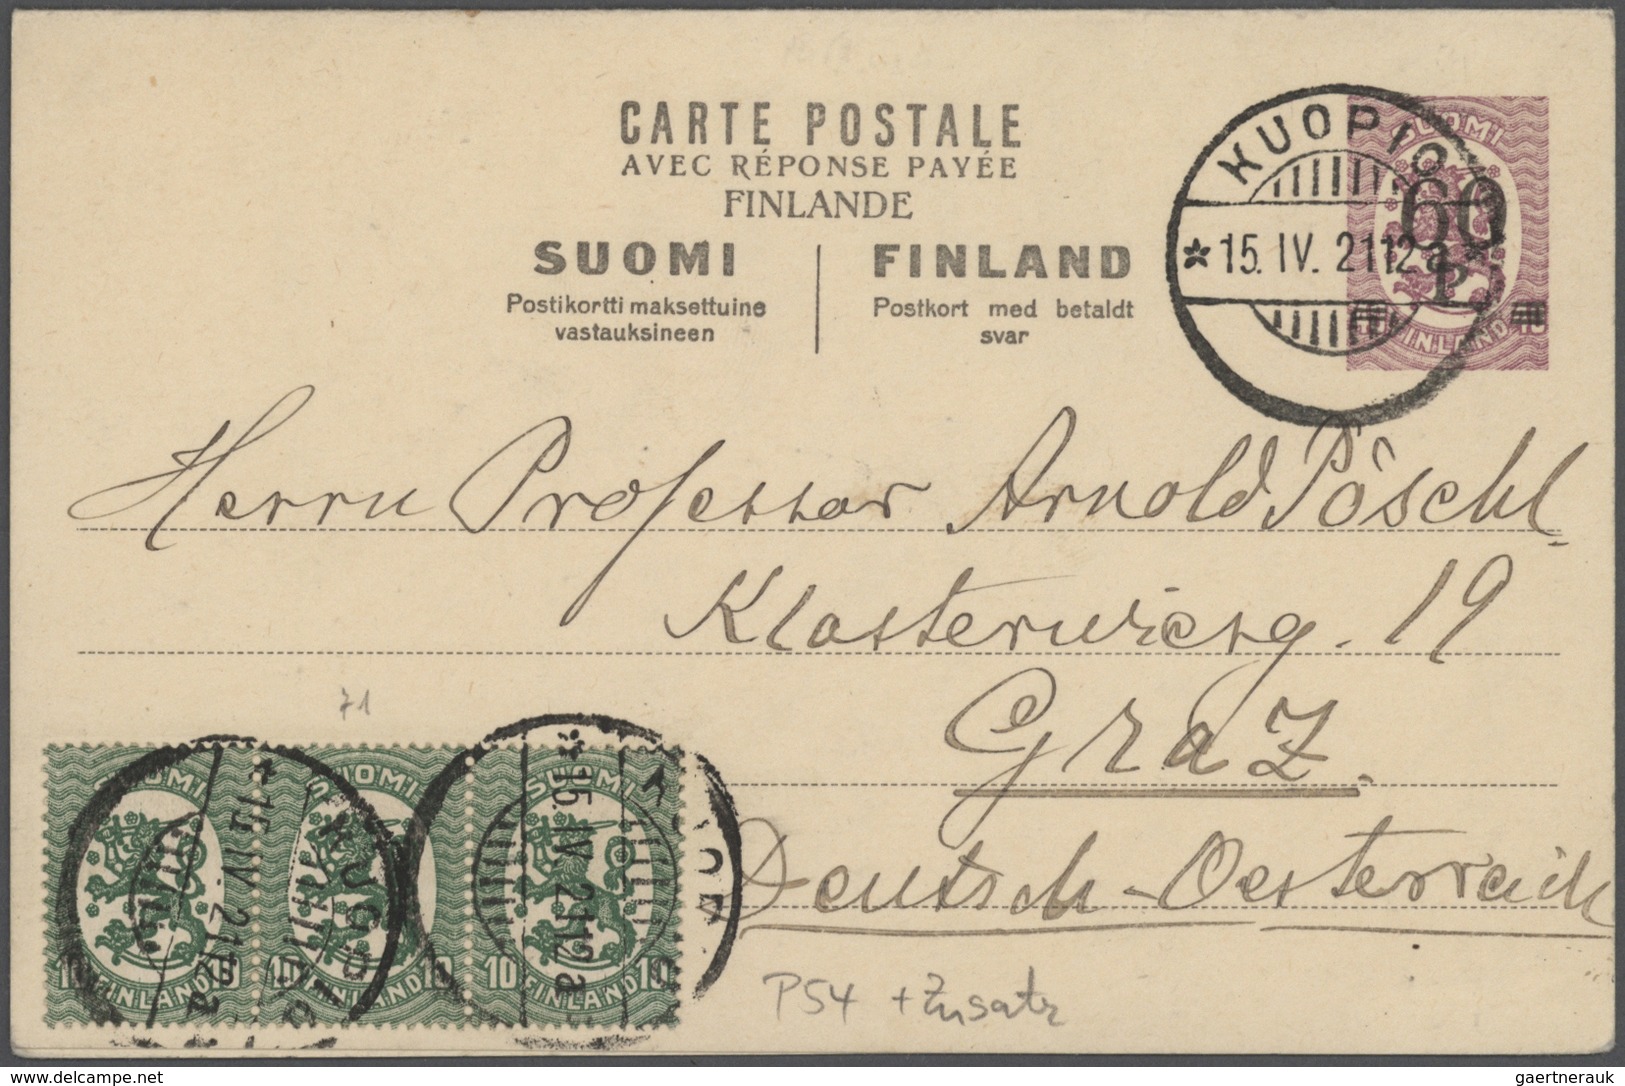 CARTE POSTALE
AVEC RÉPONSE PAYÉE
FINLANDE
SUOMI
Postikortti maksettuine
vastauksineen
FINLAND
Postkort med betaldt
svar
KUOPIO
* 15. IV. 21 12 a *
SUOMI
60
P
FINLAND
Herrn Professor Arnold Pöschl
Klosterwiesg. 19
Graz.
Deutsch-Oesterreich
71
SUOMI
10 10
FINLAND
SUOMI
10 10
FINLAND
SUOMI
10 10
FINLAND
* 15. IV. 21 12 a
KUOPIO
* 15. IV. 21 12 a
P54 + Zusatz
delcampe.net
gaertnerauk